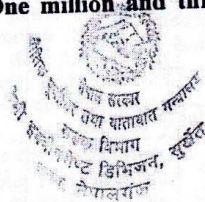 One million and thi
नेपाल सरकार
भौतिक पूर्वाधार तथा यातायात मन्त्रालय
सडक विभाग
डिभिजन, सुर्खेत
नेपालगंज